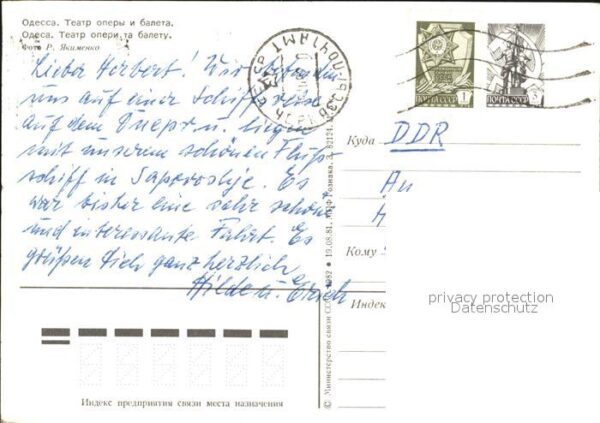 Одесса. Театр оперы и балета.
Одеса. Театр опери та балету.
Фото Р. Якименко
Lieber Herbert! Wir befinden
uns auf einer Schiffsreise
auf dem Dnepr u. liegen
mit unserem schönen Fluß-
schiff in Saporoshje. Es
war bisher eine sehr schöne
und interessante Fahrt. Es
grüßen Dich ganz herzlich
Hilde u. Erich
ПОЧТА СССР 1
ПОЧТА СССР
Куда DDR
An
Кому
Индекс
privacy protection
Datenschutz
Индекс предприятия связи места назначения
© Министерство связи СССР. 1982 ● 19.08.81.